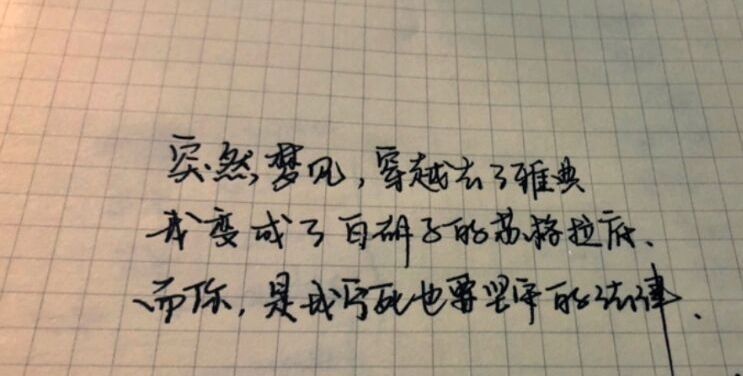 突然梦见，穿越去了雅典
我变成了白胡子的苏格拉底、
而你，是我宁死也要坚守的法律.